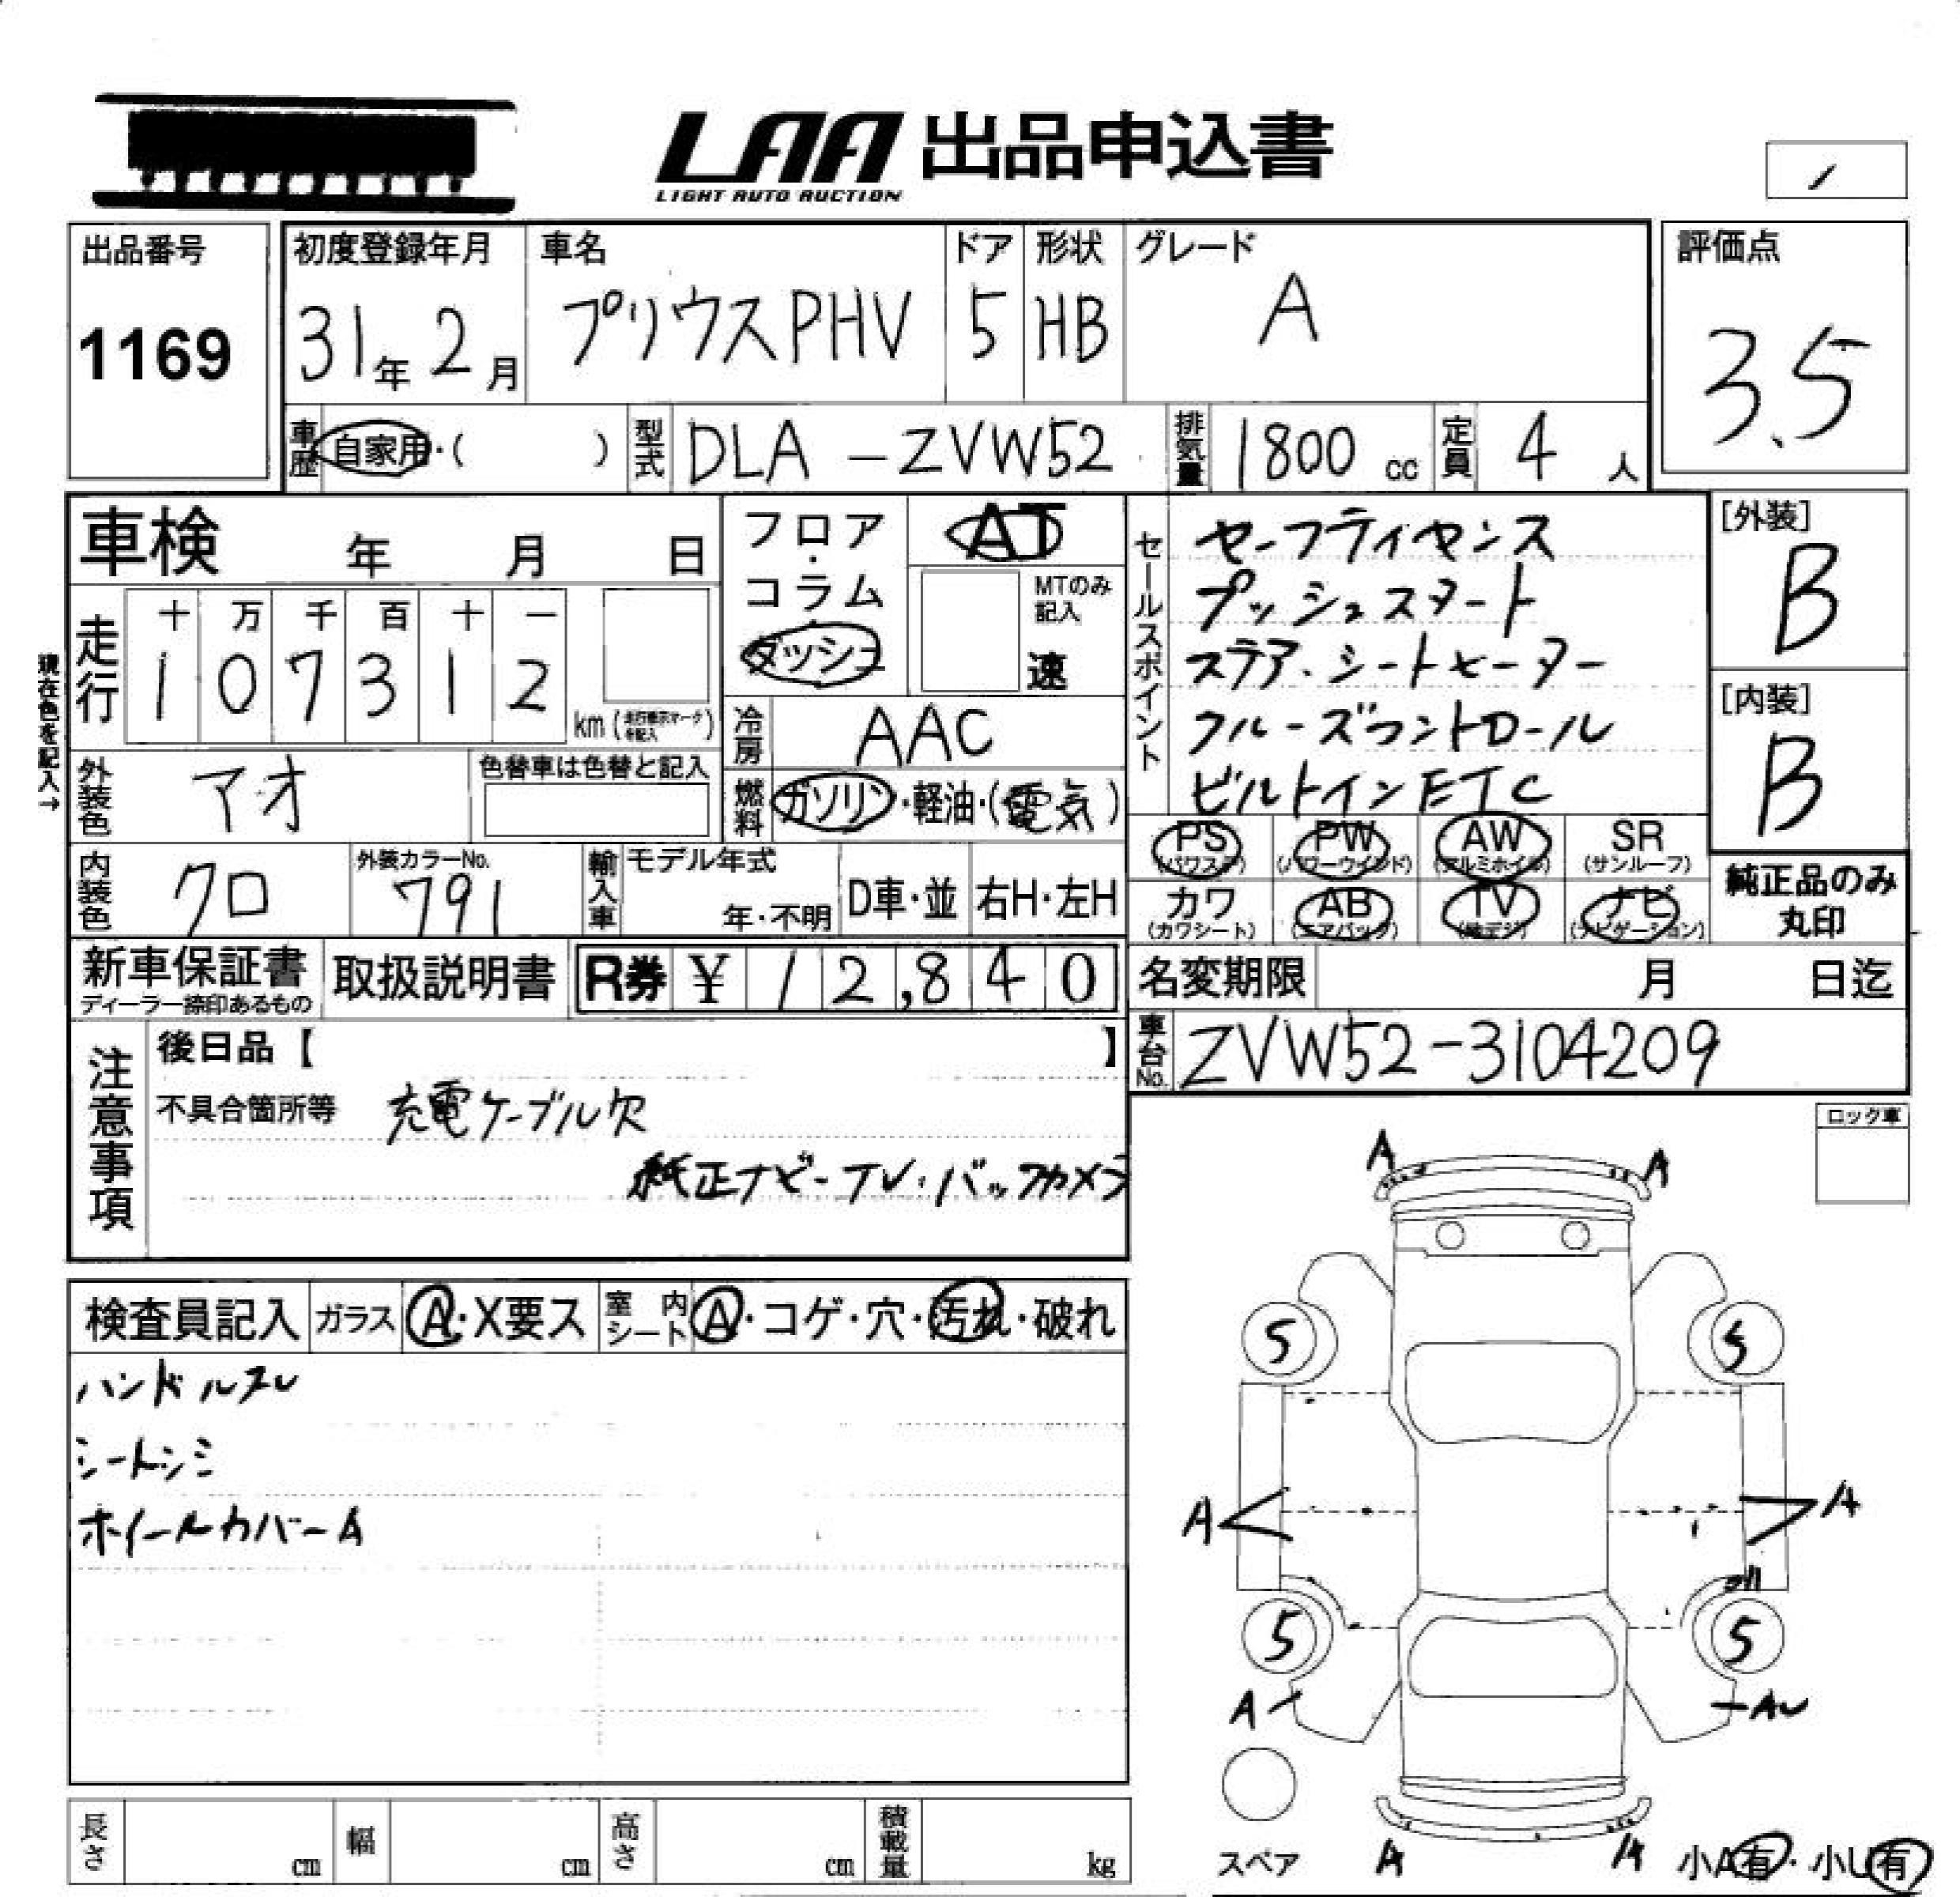 LAA 出品申込書
LIGHT AUTO AUCTION
出品番号
1169
初度登録年月
31年 2月
車名
プリウスPHV
ドア
5
形状
HB
グレード
A
評価点
3.5
車歴 自家用・( )
型式 DLA-ZVW52
排気量 1800 cc
定員 4 人
車検 年 月 日
現在色を記入→
走行
十 万 千 百 十 一
1 0 7 3 1 2
km (走行表示マークを記入)
フロア・コラム・ダッシュ
AT
MTのみ記入
速
冷房 AAC
燃料 ガソリン・軽油・(電気)
外装色 アオ
色替車は色替と記入
内装色 クロ
外装カラーNo.
791
輸入車
モデル年式
年・不明
D車・並
右H・左H
セールスポイント
セーフティセンス
プッシュスタート
ステア・シートヒーター
クルーズコントロール
ビルトインETC
[外装]
B
[内装]
B
PS (パワステ)
PW (パワーウインド)
AW (アルミホイル)
SR (サンルーフ)
カワ (カワシート)
AB (エアバッグ)
TV (地デジ)
ナビ (ナビゲーション)
純正品のみ
丸印
新車保証書
ディーラー捺印あるもの
取扱説明書
R券 ¥ 12,840
名変期限 月 日迄
車台No. ZVW52-3104209
注意事項
後日品【 】
不具合箇所等 充電ケーブル欠
純正ナビ-TV・バックカメラ
ロック車
検査員記入
ガラス A・X要ス
室内シート A・コゲ・穴・汚れ・破れ
ハンドルスレ
シートシミ
ホイールカバーA
A A
5 5
A A
5 5
A AU
スペア
A A
小A有・小U有
長さ cm
幅 cm
高さ cm
積載量 kg